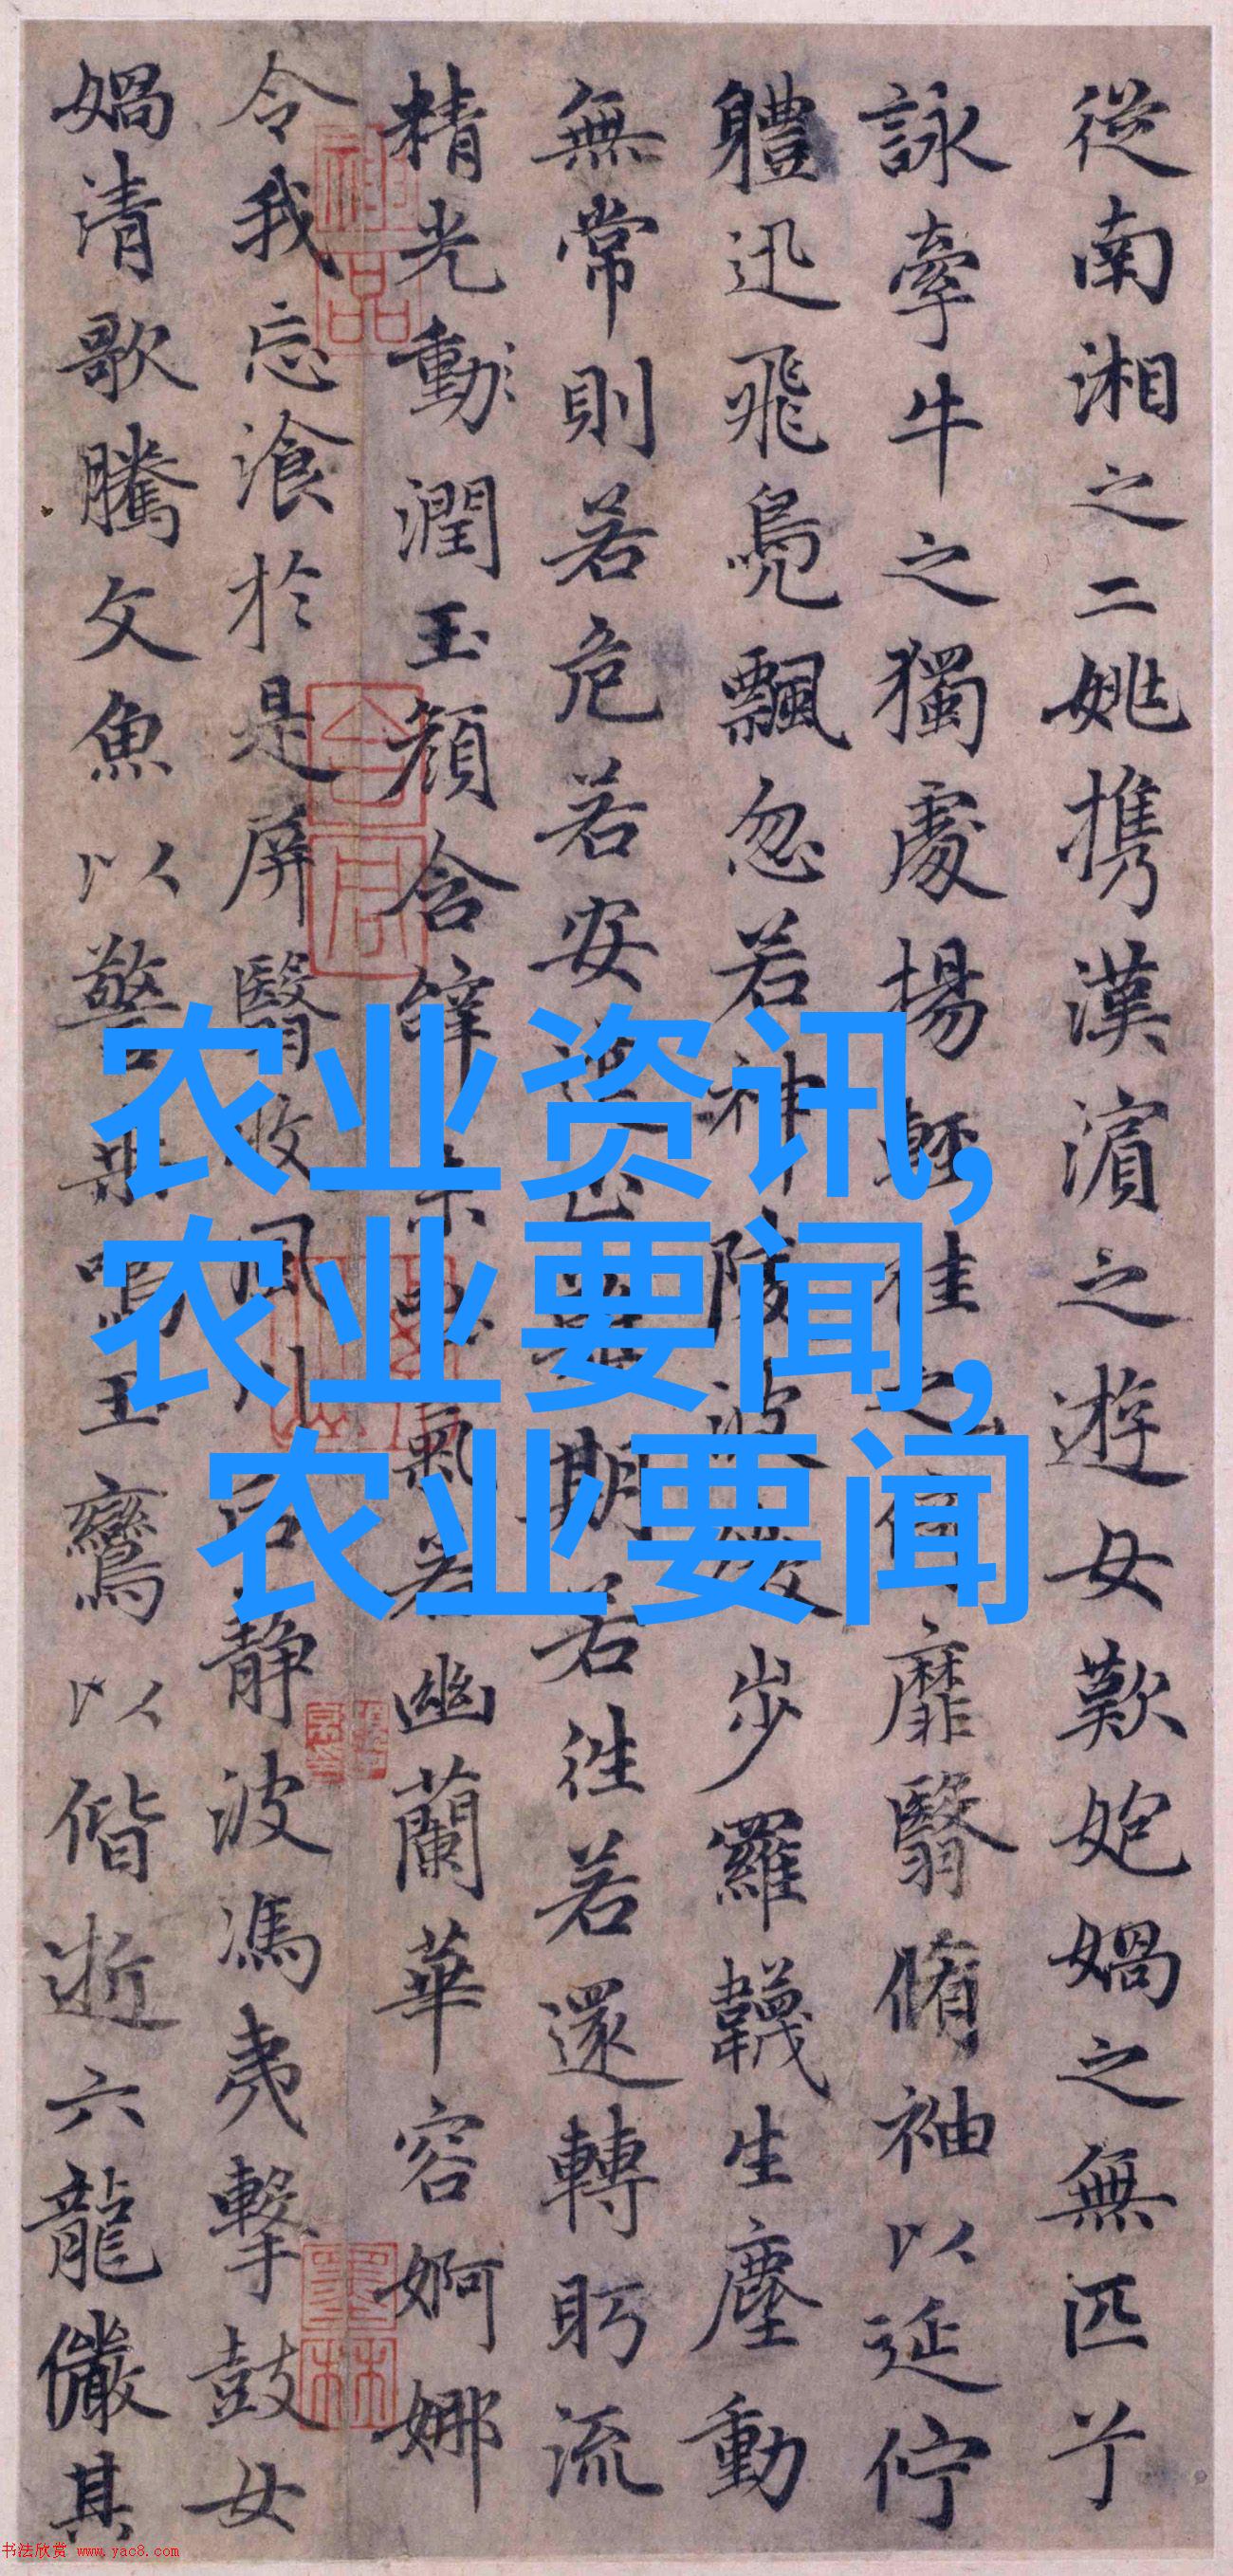 從南湘之二姚携漢濵之遊女歎媧之無匹兮
詠牽牛之獨處揚輕袿之靡翳脩袖以延佇
軆迅飛鳧飄忽若神陵波步羅韈生塵動
無常則若危若安進止難期若往若還轉眄流
精光動潤玉顏含辭未氣若幽蘭華容婀娜
令我忘飡於是屏翳收風川后靜波馮夷擊鼓女
媧清歌騰文魚以警乘鳴玉鸞以偕逝六龍儼其
农业资讯,
农业要闻,
农业要闻
书法欣赏 www.yac8.com